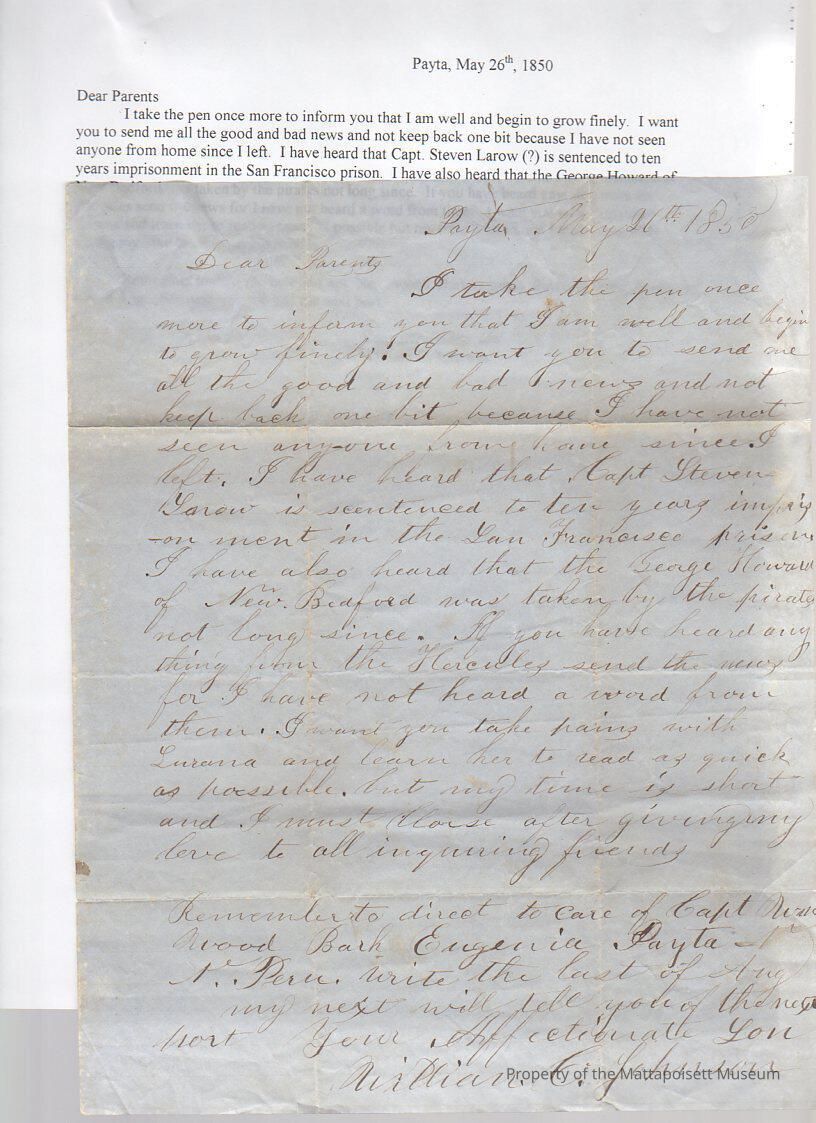 Payta, May 26th, 1850
Dear Parents
I take the pen once more to inform you that I am well and begin to grow finely.  I want
you to send me all the good and bad news and not keep back one bit because I have not seen
anyone from home since I left.  I have heard that Capt. Steven Larow (?) is sentenced to ten
years imprisonment in the San Francisco prison.  I have also heard that the George Howard of
Payta May 26th 1850
Dear Parents
I take the pen once
more to inform you that I am well and begin
to grow finely! I want you to send me
all the good and bad news and not
keep back one bit because I have not
seen anyone from home since I
left. I have heard that Capt Steven
Larow is scentenced to ten years impris
-on ment in the San Francisco prison
I have also heard that the George Howard
of New Bedford was taken by the pirates
not long since. If you have heard any
thing from the Hercules send the news
for I have not heard a word from
them. I want you take pains with
Lurana and learn her to read as quick
as possible. but my time is short
and I must Clorse after giveing my
love to all inquering friends
Remember to direct to care of Capt
Wood Bark Eugenia Payta
N. Peru. write the last of Aug
my next will tell you of the next
port Your Affectionate Son
William C.
Property of the Mattapoisett Museum